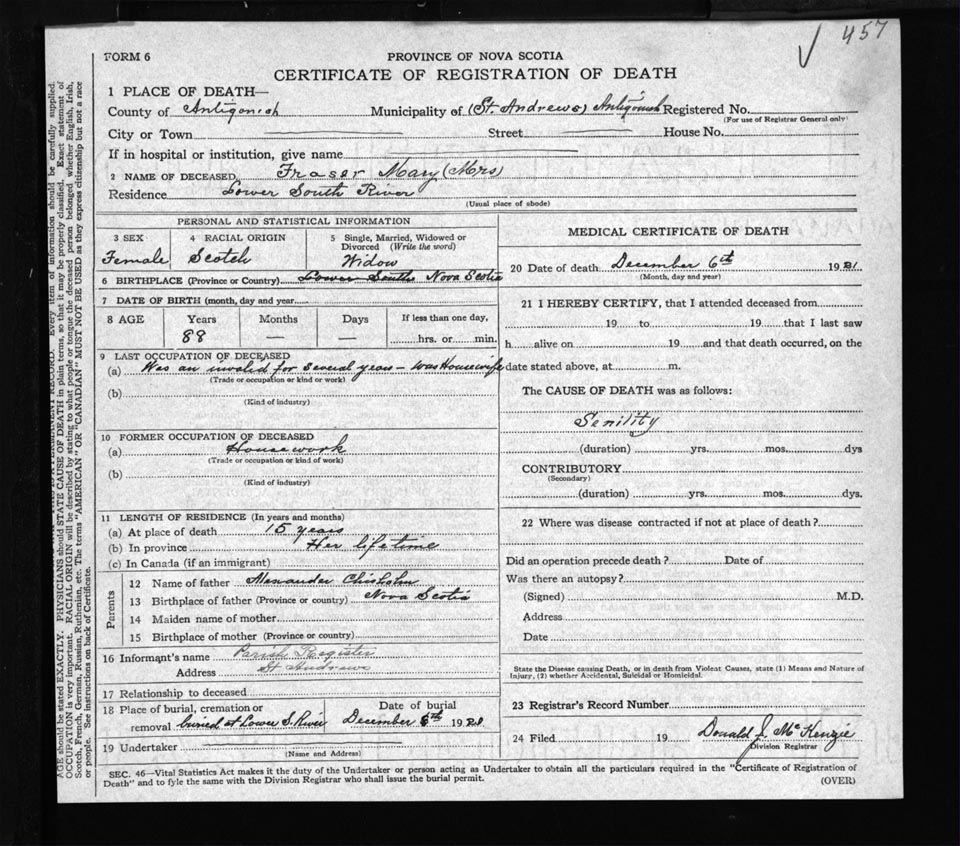 457
FORM 6
PROVINCE OF NOVA SCOTIA
CERTIFICATE OF REGISTRATION OF DEATH
1 PLACE OF DEATH—
County of Antigonish Municipality of (St. Andrews) Antigonish Registered No.
(For use of Registrar General only)
City or Town Street House No.
If in hospital or institution, give name
2 NAME OF DECEASED Fraser Mary (Mrs)
Residence Lower South River
(Usual place of abode)
PERSONAL AND STATISTICAL INFORMATION
3 SEX
Female
4 RACIAL ORIGIN
Scotch
5 Single, Married, Widowed or
Divorced (Write the word)
Widow
6 BIRTHPLACE (Province or Country) Lower South Nova Scotia
7 DATE OF BIRTH (month, day and year)
8 AGE Years Months Days If less than one day,
88 — — hrs. or min.
9 LAST OCCUPATION OF DECEASED
(a) Was an invalid for several years – was Housewife
(Trade or occupation or kind or work)
(b)
(Kind of industry)
10 FORMER OCCUPATION OF DECEASED
(a) Housework
(Trade or occupation or kind of work)
(b)
(Kind of industry)
11 LENGTH OF RESIDENCE (In years and months)
(a) At place of death 15 years
(b) In province Her lifetime
(c) In Canada (if an immigrant)
Parents
12 Name of father Chisholm
13 Birthplace of father (Province or country) Nova Scotia
14 Maiden name of mother
15 Birthplace of mother (Province or country)
16 Informant's name Parish Register
Address St Andrews
17 Relationship to deceased
18 Place of burial, cremation or Date of burial
removal buried at Lower S. River December 8th 1921
19 Undertaker
(Name and Address)
MEDICAL CERTIFICATE OF DEATH
20 Date of death December 6th 1921.
(Month, day and year)
21 I HEREBY CERTIFY, that I attended deceased from
19 to 19 that I last saw
h alive on 19 and that death occurred, on the
date stated above, at m.
The CAUSE OF DEATH was as follows:
Senility
(duration) yrs. mos. dys
CONTRIBUTORY
(Secondary)
(duration) yrs. mos. dys.
22 Where was disease contracted if not at place of death?
Did an operation precede death? Date of
Was there an autopsy?
(Signed) M.D.
Address
Date
State the Disease causing Death, or in death from Violent Causes, state (1) Means and Nature of
Injury, (2) whether Accidental, Suicidal or Homicidal.
23 Registrar's Record Number
24 Filed 19 Donald J. McKenzie
Division Registrar
SEC. 46—Vital Statistics Act makes it the duty of the Undertaker or person acting as Undertaker to obtain all the particulars required in the "Certificate of Registration of
Death" and to fyle the same with the Division Registrar who shall issue the burial permit.
(OVER)
Every item of information should be carefully supplied.
AGE should be stated EXACTLY. PHYSICIANS should STATE CAUSE OF DEATH in plain terms, so that it may be properly classified. Exact statement of
OCCUPATION is very important. RACIAL ORIGIN will be described by stating to what people or tongue the deceased person belonged whether English, Irish,
Scotch, French, German, Russian, Ruthenian, etc. The terms "AMERICAN" OR "CANADIAN" MUST NOT BE USED as they express citizenship but not a race
or people. See instructions on back of Certificate.